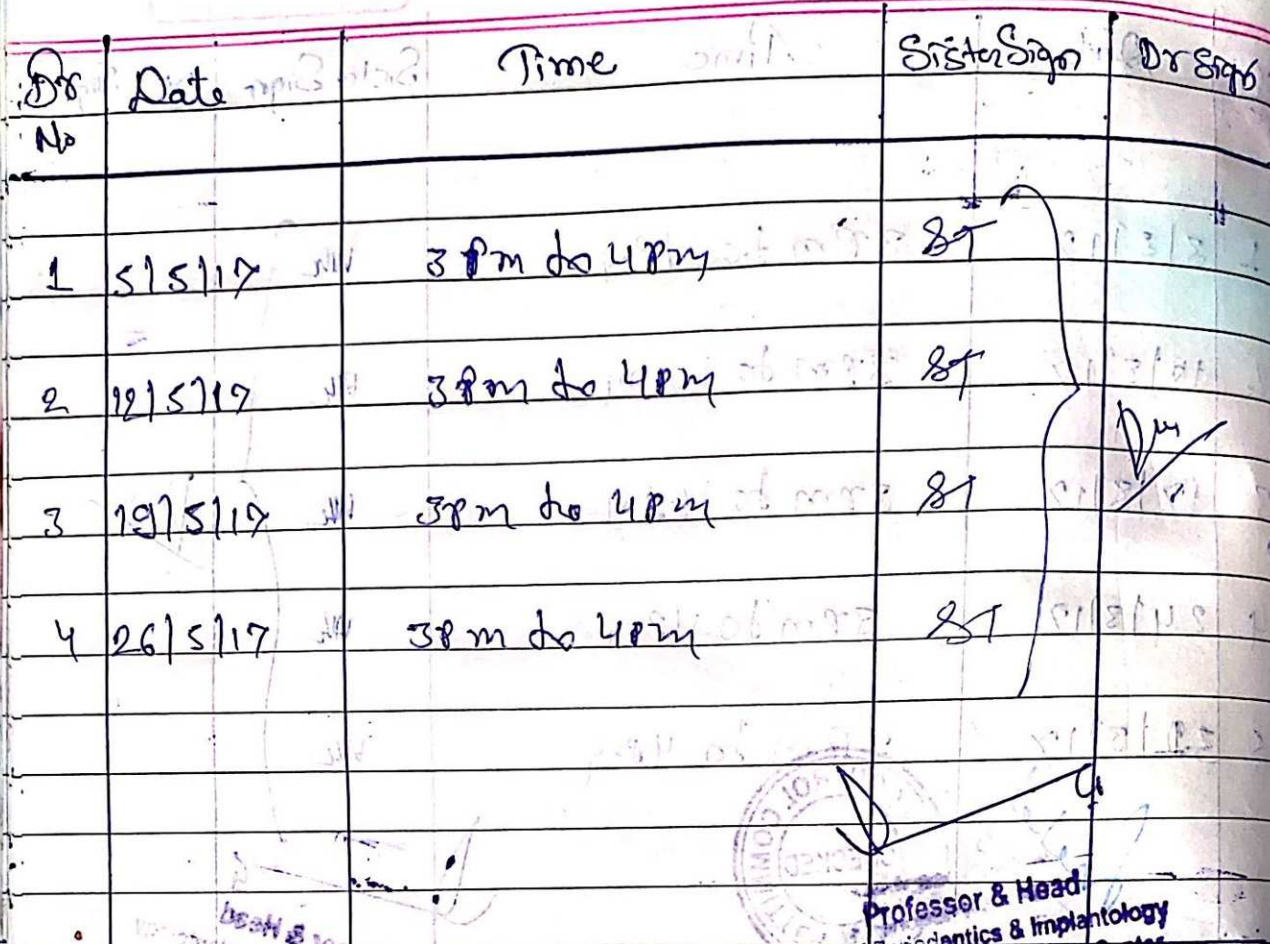 Dr No Date Time Sister Sign Dr Sign
1 5/5/17 3 Pm to 4 Pm ST
2 12/5/17 3 Pm to 4 Pm ST
3 19/5/17 3 Pm to 4 Pm ST
4 26/5/17 3 Pm to 4 Pm ST
Professor & Head
& Implantology